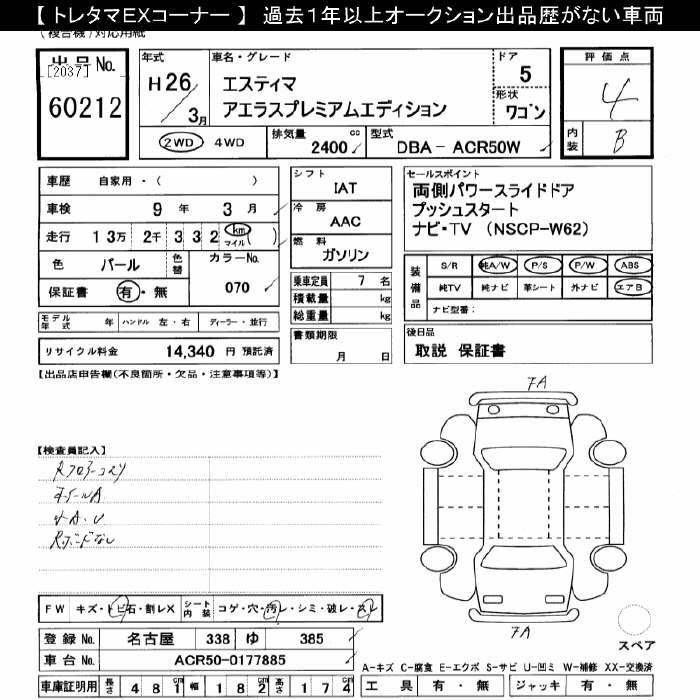 【 トレタマEXコーナー 】 過去1年以上オークション出品歴がない車両
(複合機)対応用紙
出品No.
[2037]
60212
年式
H26
3月
車名・グレード
エスティマ
アエラスプレミアムエディション
ドア
5
形状
ワゴン
評価点
4
内装
B
2WD 4WD
排気量
2400 cc
型式
DBA - ACR50W
車歴 自家用 - ( )
車検 9年 3月
走行 13万 2千 3 3 2 km マイル ( )
色 パール 色替 カラーNo.
070
保証書 有・無
モデル年式 年 ハンドル 左・右 ディーラー・並行
リサイクル料金 14,340 円 預託済
シフト
IAT
冷房
AAC
燃料
ガソリン
乗車定員 7 名
積載量 kg
総重量 kg
書類期限
月 日
セールスポイント
両側パワースライドドア
プッシュスタート
ナビ・TV (NSCP-W62)
装備品
S/R 純A/W P/S P/W ABS
純TV 純ナビ 革シート 外ナビ エアB
ナビ型番：
後日品
取説 保証書
【出品店申告欄(不良箇所・欠品・注意事項等)】
【検査員記入】
7A
7A
スペア
FW キズ・トビ石・割レX シート内装 コゲ・穴・汚レ・シミ・破レ・スレ
登録No. 名古屋 338 ゆ 385
車台No. ACR50-0177885
車庫証明用 長さ 481cm 幅 182cm 高さ 174cm
A-キズ C-腐食 E-エクボ S-サビ U-凹ミ W-補修 XX-交換済
工具 有・無 ジャッキ 有・無